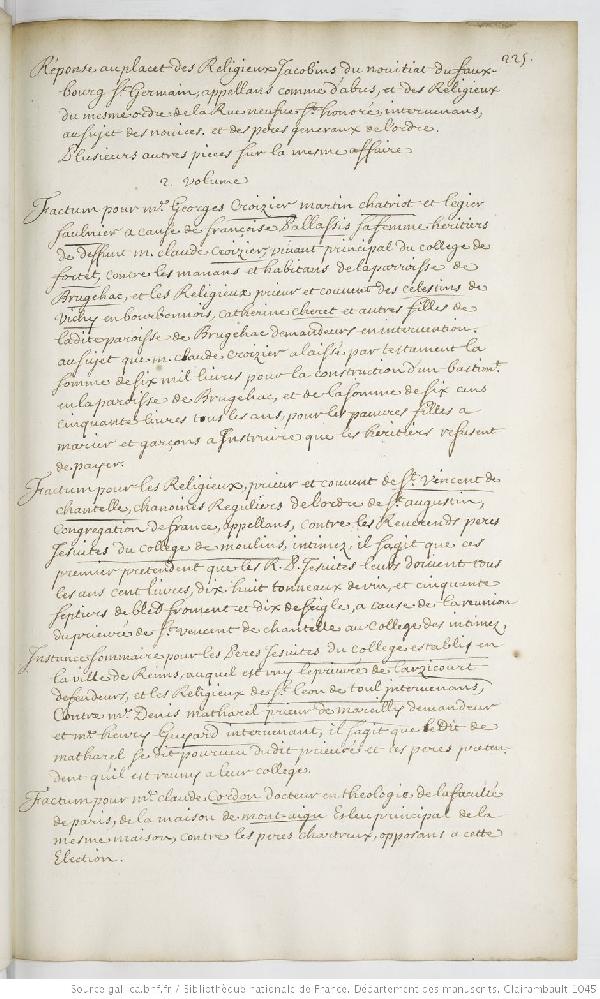 225.
Réponse au placet des Religieux Jacobins du novitiat du faux-
bourg St. Germain, appellans comme d'abus, et des Religieux
du mesme ordre de la Rue neufue St. honoré, intervenans,
au sujet des novices. et des peres generaux de l'ordre.
Plusieurs autres pieces sur la mesme affaire
2. volume
Factum pour mre. Georges Croizier martin chatriot et legier
saulnier a cause de françoise Pallassis sa femme heritiers
de deffunt m. claude Croizier, vivant principal du college de
fortet, contre les manans et habitans de la parroisse de
Brugehac, et les Religieux prieur et couvent des celestins de
vichy en bourbonnois, catherine cheret et autres filles de
ladite paroisse de Brugehac demandeurs en intervention.
au sujet que m. claude Croizier a laissé par testament la
somme de six mil livres pour la construction d'un bastimt.
en la paroisse de Brugehac, et de la somme de six cens
cinquante livres tous les ans, pour les pauvres filles a
marier et garçons a Instruire que les heritiers refusent
de payer.
Factum pour les Religieux, prieur et couvent de St. vincent de
chantelle, chanoines Reguliers de l'ordre de St. augustin,
congregation de france, appellans, contre les Reverends peres
Jesuites du college de moulins, intimez, il s'agit que ces
premier pretendent que les R. P. Jesuites leurs doivent tous
les ans cent livres, dix huit tonneaux de vin, et cinquante
septiers de bled froment et dix de seigle, a cause de la reunion
du prieuré de St. vincent de chantelle au college des intimez,
Instance sommaire pour les Peres Jesuites du college establis en
la ville de Reims, auquel est uny le prieuré de Larzicourt
defendeurs, et les Religieux de St. Leon de toul intervenans,
Contre mre. Denis matharel prieur de mareilly demandeur
et mre. henry Guepard intervenant, il s'agit que ledit de
matharel se dit pourveu dudit prieuré et les peres preten-
dent qu'il est reuny a leur college.
Factum pour mre. claude Cordon docteur en theologie de la faculté
de paris, de la maison de mont-aigu Esleu principal de la
mesme maison, contre les peres chartreux, opposans a cette
Election.
Source gallica.bnf.fr / Bibliothèque nationale de France. Département des manuscrits. Clairambault 1045